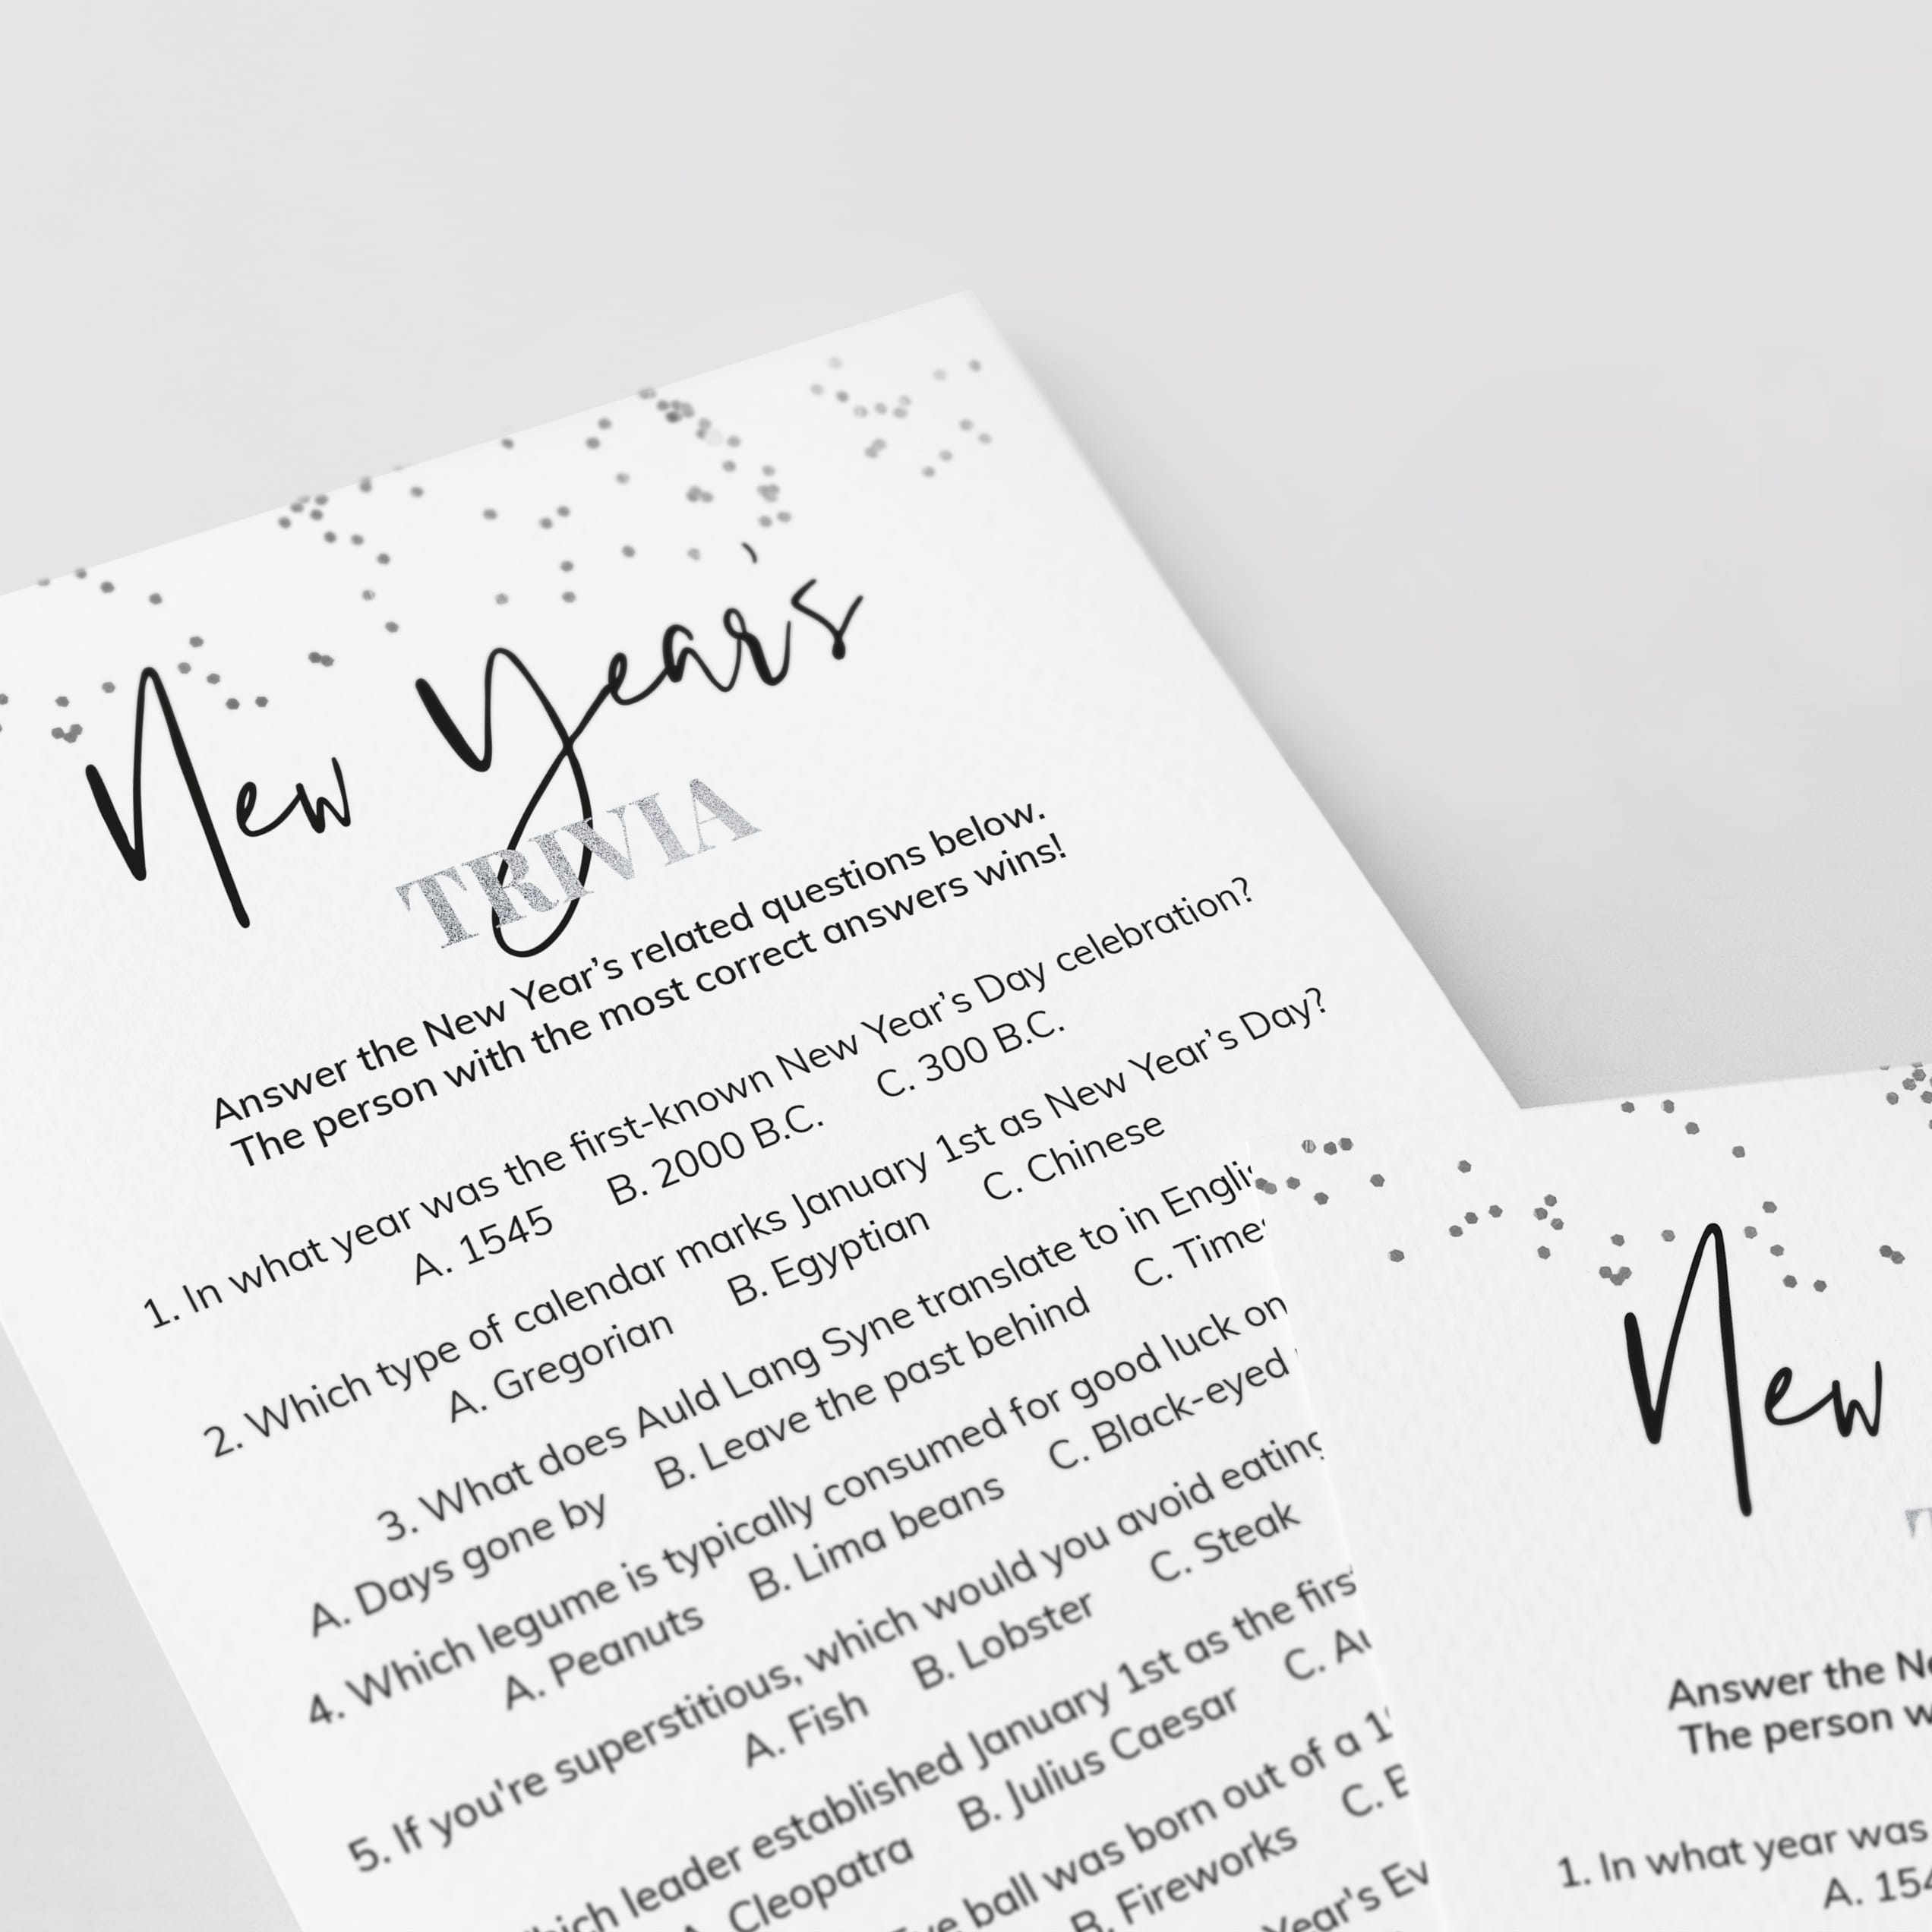 New Year's
TRIVIA
Answer the New Year's related questions below.
The person with the most correct answers wins!
1. In what year was the first-known New Year's Day celebration?
A. 1545 B. 2000 B.C. C. 300 B.C.
2. Which type of calendar marks January 1st as New Year's Day?
A. Gregorian B. Egyptian C. Chinese
3. What does Auld Lang Syne translate to in
A. Days gone by B. Leave the past behind C.
4. Which legume is typically consumed for good luck on
A. Peanuts B. Lima beans C. Black-eyed
5. If you're superstitious, which would you avoid eating
A. Fish B. Lobster C. Steak
leader established January 1st as the first
Cleopatra B. Julius Caesar C.
ball was born out of a
B. Fireworks C.
Year's
New
Answer the
The person
1. In what year was
A.